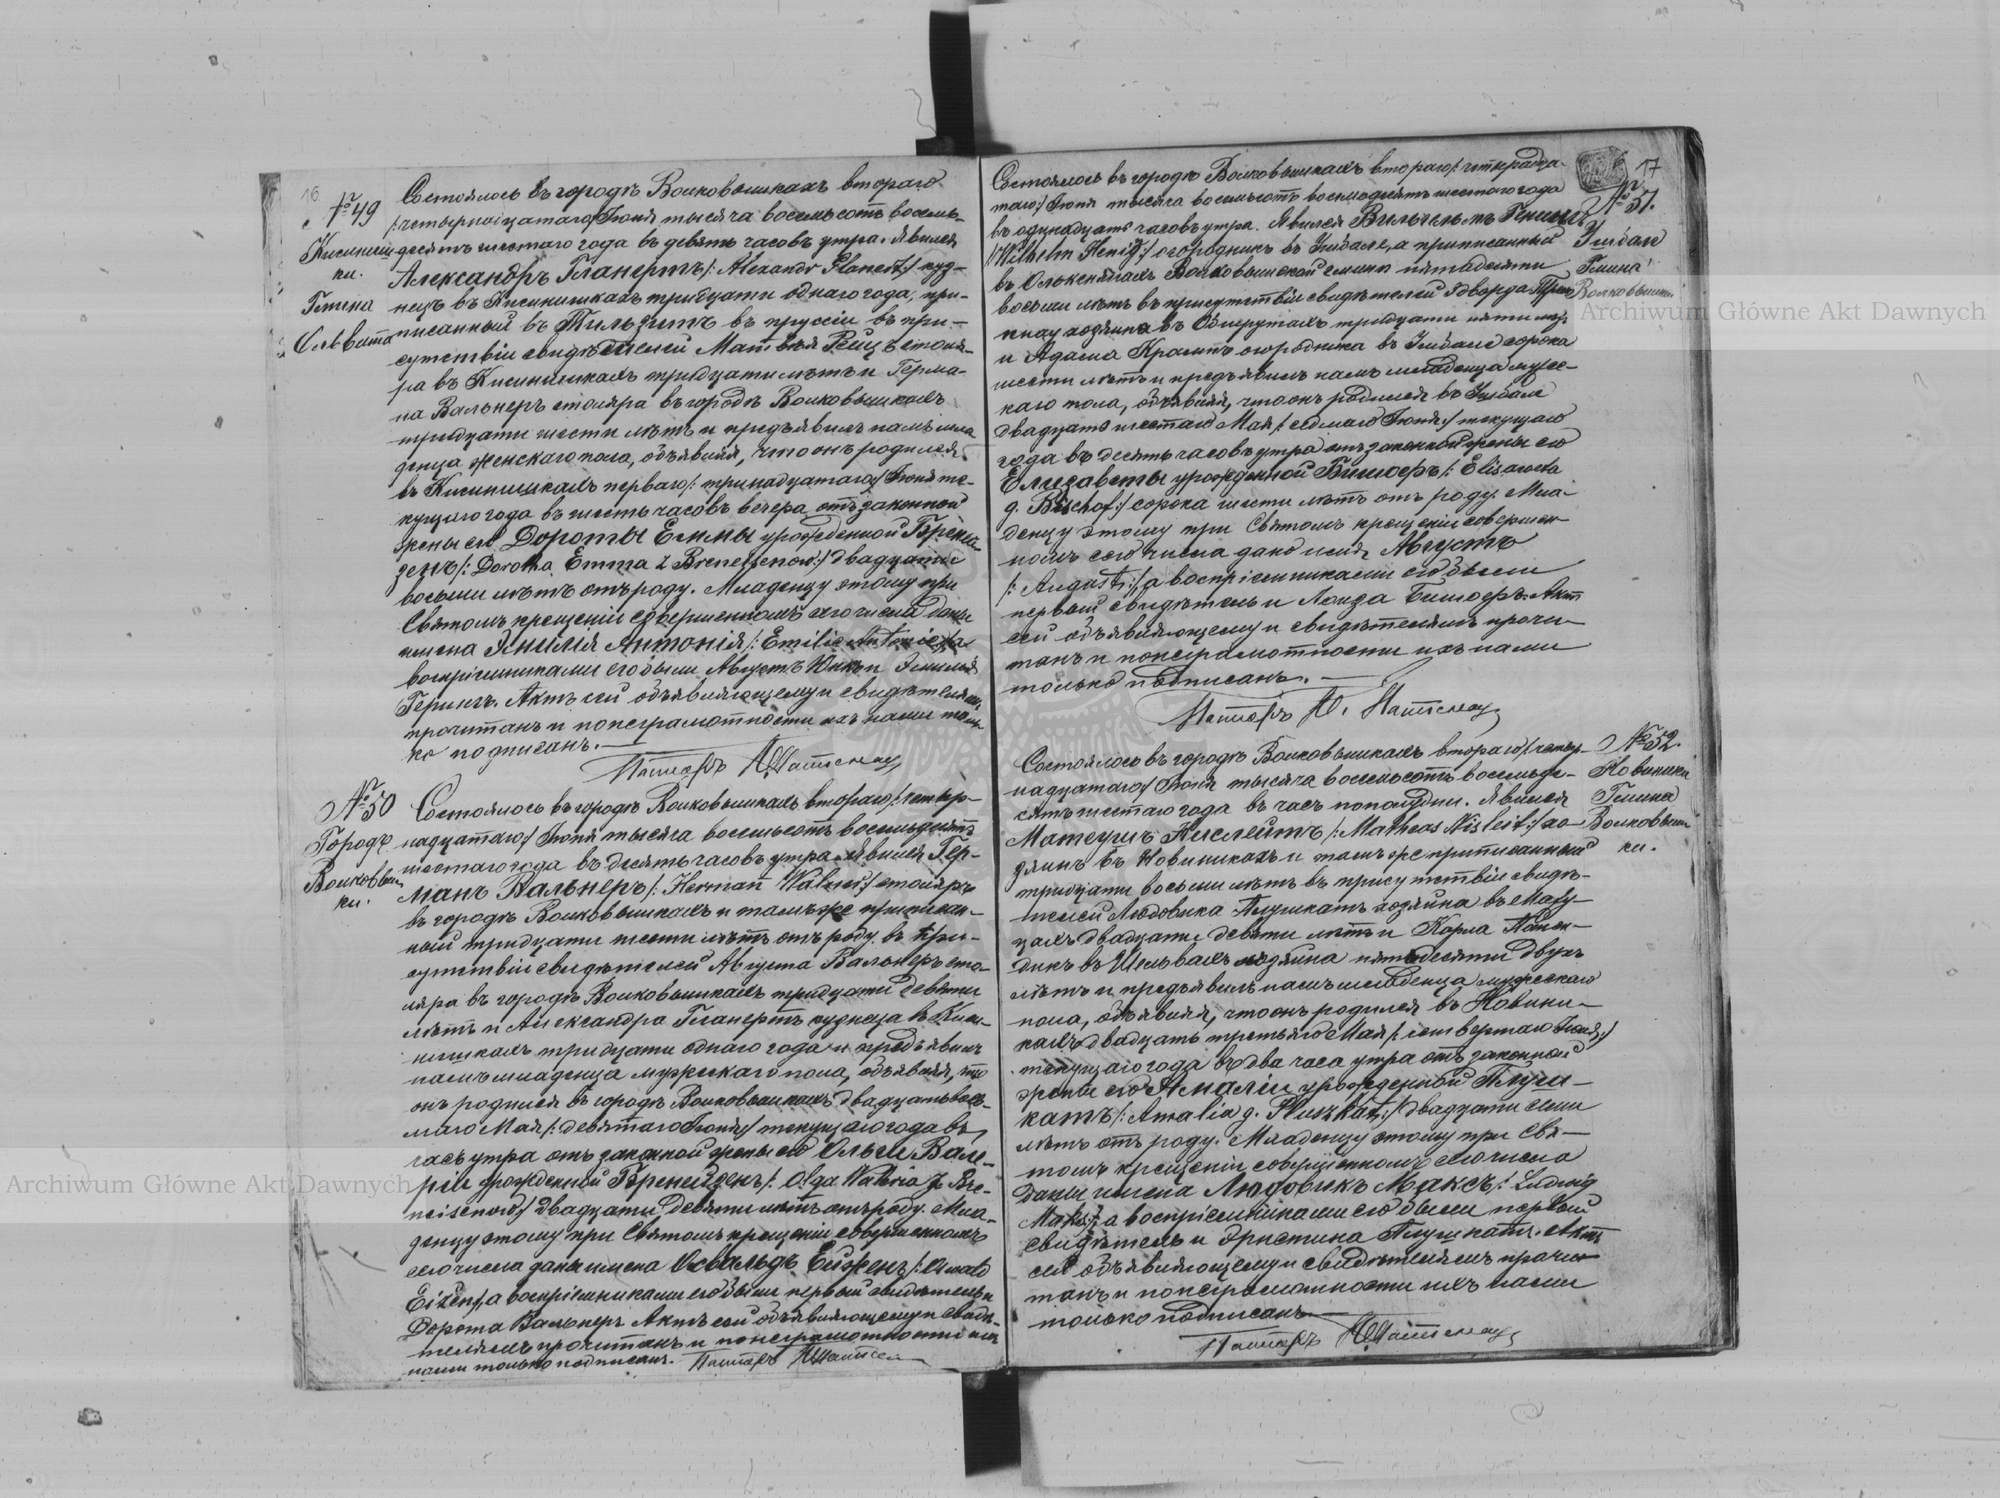 16
№ 49
Кисиниш-
ки.
Гмина
Состоялось въ городѣ Волковышкахъ втораго
/:четырнадцатаго/ Іюня тысяча восемьсотъ восемь-
десятъ шестаго года въ девять часовъ утра. Явился
Александръ Планертъ /: Alexandr Planert:/ куз-
нецъ въ Кисинишкахъ тридцати однаго года, при-
писанный въ Тильзитъ въ пруссіи въ при-
сутствіи свидѣтелей Матвѣя столя-
ра въ Кисинишкахъ тридцати лѣтъ и Герма-
на Вальнеръ столяра въ городѣ Волковышкахъ
тридцати шести лѣтъ и предъявилъ намъ мла
денца женскаго пола, объявляя, что онъ родился
въ Кисинишкахъ перваго /: тринадцатаго/ Іюня те-
кущаго года въ шесть часовъ вечера отъ законной
жены его Дороты Еммы урожденной Брене-
зенъ /: Dorotha Emma z двадцати
восьми лѣтъ отъ роду. Младенцу этому при
Святомъ крещеніи совершенномъ сего числа даны
имена Эмилія Антонія /: Emilie Antonie:/ а
воспріемниками его были Августъ и Эмилія
Герингъ. Актъ сей объявляющему и свидѣтелямъ
прочитанъ и по неграмотности ихъ нами толь-
ко подписанъ.
Пасторъ
№ 50
Городъ
Волковыш
ки.
Состоялось въ городѣ Волковышкахъ втораго /: четыр-
надцатаго/ Іюня тысяча восемьсотъ восемьдесятъ
шестаго года въ десять часовъ утра. Явился Гер-
манъ Вальнеръ /: Herman Walner:/ столяръ
въ городѣ Волковышкахъ и тамъ же приписан-
ный тридцати шести лѣтъ отъ роду въ при-
сутствіи свидѣтелей Августа Вальнеръ сто-
ляра въ городѣ Волковышкахъ тридцати девяти
лѣтъ и Александра Планертъ кузнеца въ Киси-
нишкахъ тридцати однаго года и предъявилъ
намъ младенца мужескаго пола, объявляя, что
онъ родился въ городѣ Волковышкахъ двадцать вось-
маго Мая /: девятаго Іюня/ текущаго года въ
часъ утра отъ законной жены его Ольги Вале-
ріи урожденной Бренейзенъ /: Olga Waleria g. Bre-
neisenow:/ двадцати девяти лѣтъ отъ роду. Мла-
денцу этому при Святомъ крещеніи совершенномъ
сего числа даны имена Освальдъ Ейженъ /: Oswald
Eizen:/, а воспріемниками его были первый свидѣтель и
Дорота Вальнеръ. Актъ сей объявляющему и свидѣ-
телямъ прочитанъ и по неграмотности ихъ
нами только подписанъ. Пасторъ
17
№ 51.
Гмина
Волковышки
Состоялось въ городѣ Волковышкахъ втораго /: четырнадца-
таго/ Іюня тысяча восемьсотъ восемьдесятъ шестаго года
въ одинадцать часовъ утра. Явился Вильгельмъ Генигъ
/: Wilhelm Henig:/ огородникъ въ а приписанный
въ Волковышской гмины пятидесяти
восьми лѣтъ въ присутствіи свидѣтелей Эдворда
хозяина въ тридцати пяти лѣтъ
и Адама огородника въ сорока
шести лѣтъ и предъявилъ намъ младенца мужес-
каго пола, объявляя, что онъ родился въ
двадцать шестаго Мая /: седьмаго Іюня/ текущаго
года въ десять часовъ утра отъ законной жены его
Елизаветы урожденной Бишофъ /: Elisaweta
g. Bischof:/ сорока шести лѣтъ отъ роду. Мла-
денцу этому при Святомъ крещеніи совершен-
номъ сего числа дано имя Августъ
/: August:/, а воспріемниками его были
первый свидѣтель и Лоиза Бишофъ. Актъ
сей объявляющему и свидѣтелямъ прочи-
танъ и по неграмотности ихъ нами
только подписанъ.
Пасторъ
№ 52.
Новиники
Гмина
Волковыш
ки.
Состоялось въ городѣ Волковышкахъ втораго /: четыр-
надцатаго/ Іюня тысяча восемьсотъ восемьде-
сятъ шестаго года въ часъ пополудни. Явился
Матеушъ Нислейтъ /: Matheas Nisleit:/ хо-
зяинъ въ Новиникахъ и тамъ же приписанный
тридцати восьми лѣтъ въ присутствіи свидѣ-
телей Людовика Плушкатъ хозяина въ
двадцати девяти лѣтъ и Карла
въ хозяина пятьдесяти двухъ
лѣтъ и предъявилъ намъ младенца мужескаго
пола, объявляя, что онъ родился въ Новини-
кахъ двадцать третьяго Мая /: четвертаго Іюня:/
текущаго года въ два часа утра отъ законной
жены его Амаліи урожденной Плуш-
катъ /: Amalia g. Pluszkat:/ двадцати семи
лѣтъ отъ роду. Младенцу этому при Свя-
томъ крещеніи совершенномъ сего числа
даны имена Людовикъ Максъ /: Ludwig
Maks:/, а воспріемниками его были первый
свидѣтель и Христина Плушкатъ. Актъ
сей объявляющему и свидѣтелямъ прочи-
танъ и по неграмотности ихъ нами
только подписанъ.
Пасторъ
Archiwum Główne Akt Dawnych
Archiwum Główne Akt Dawnych